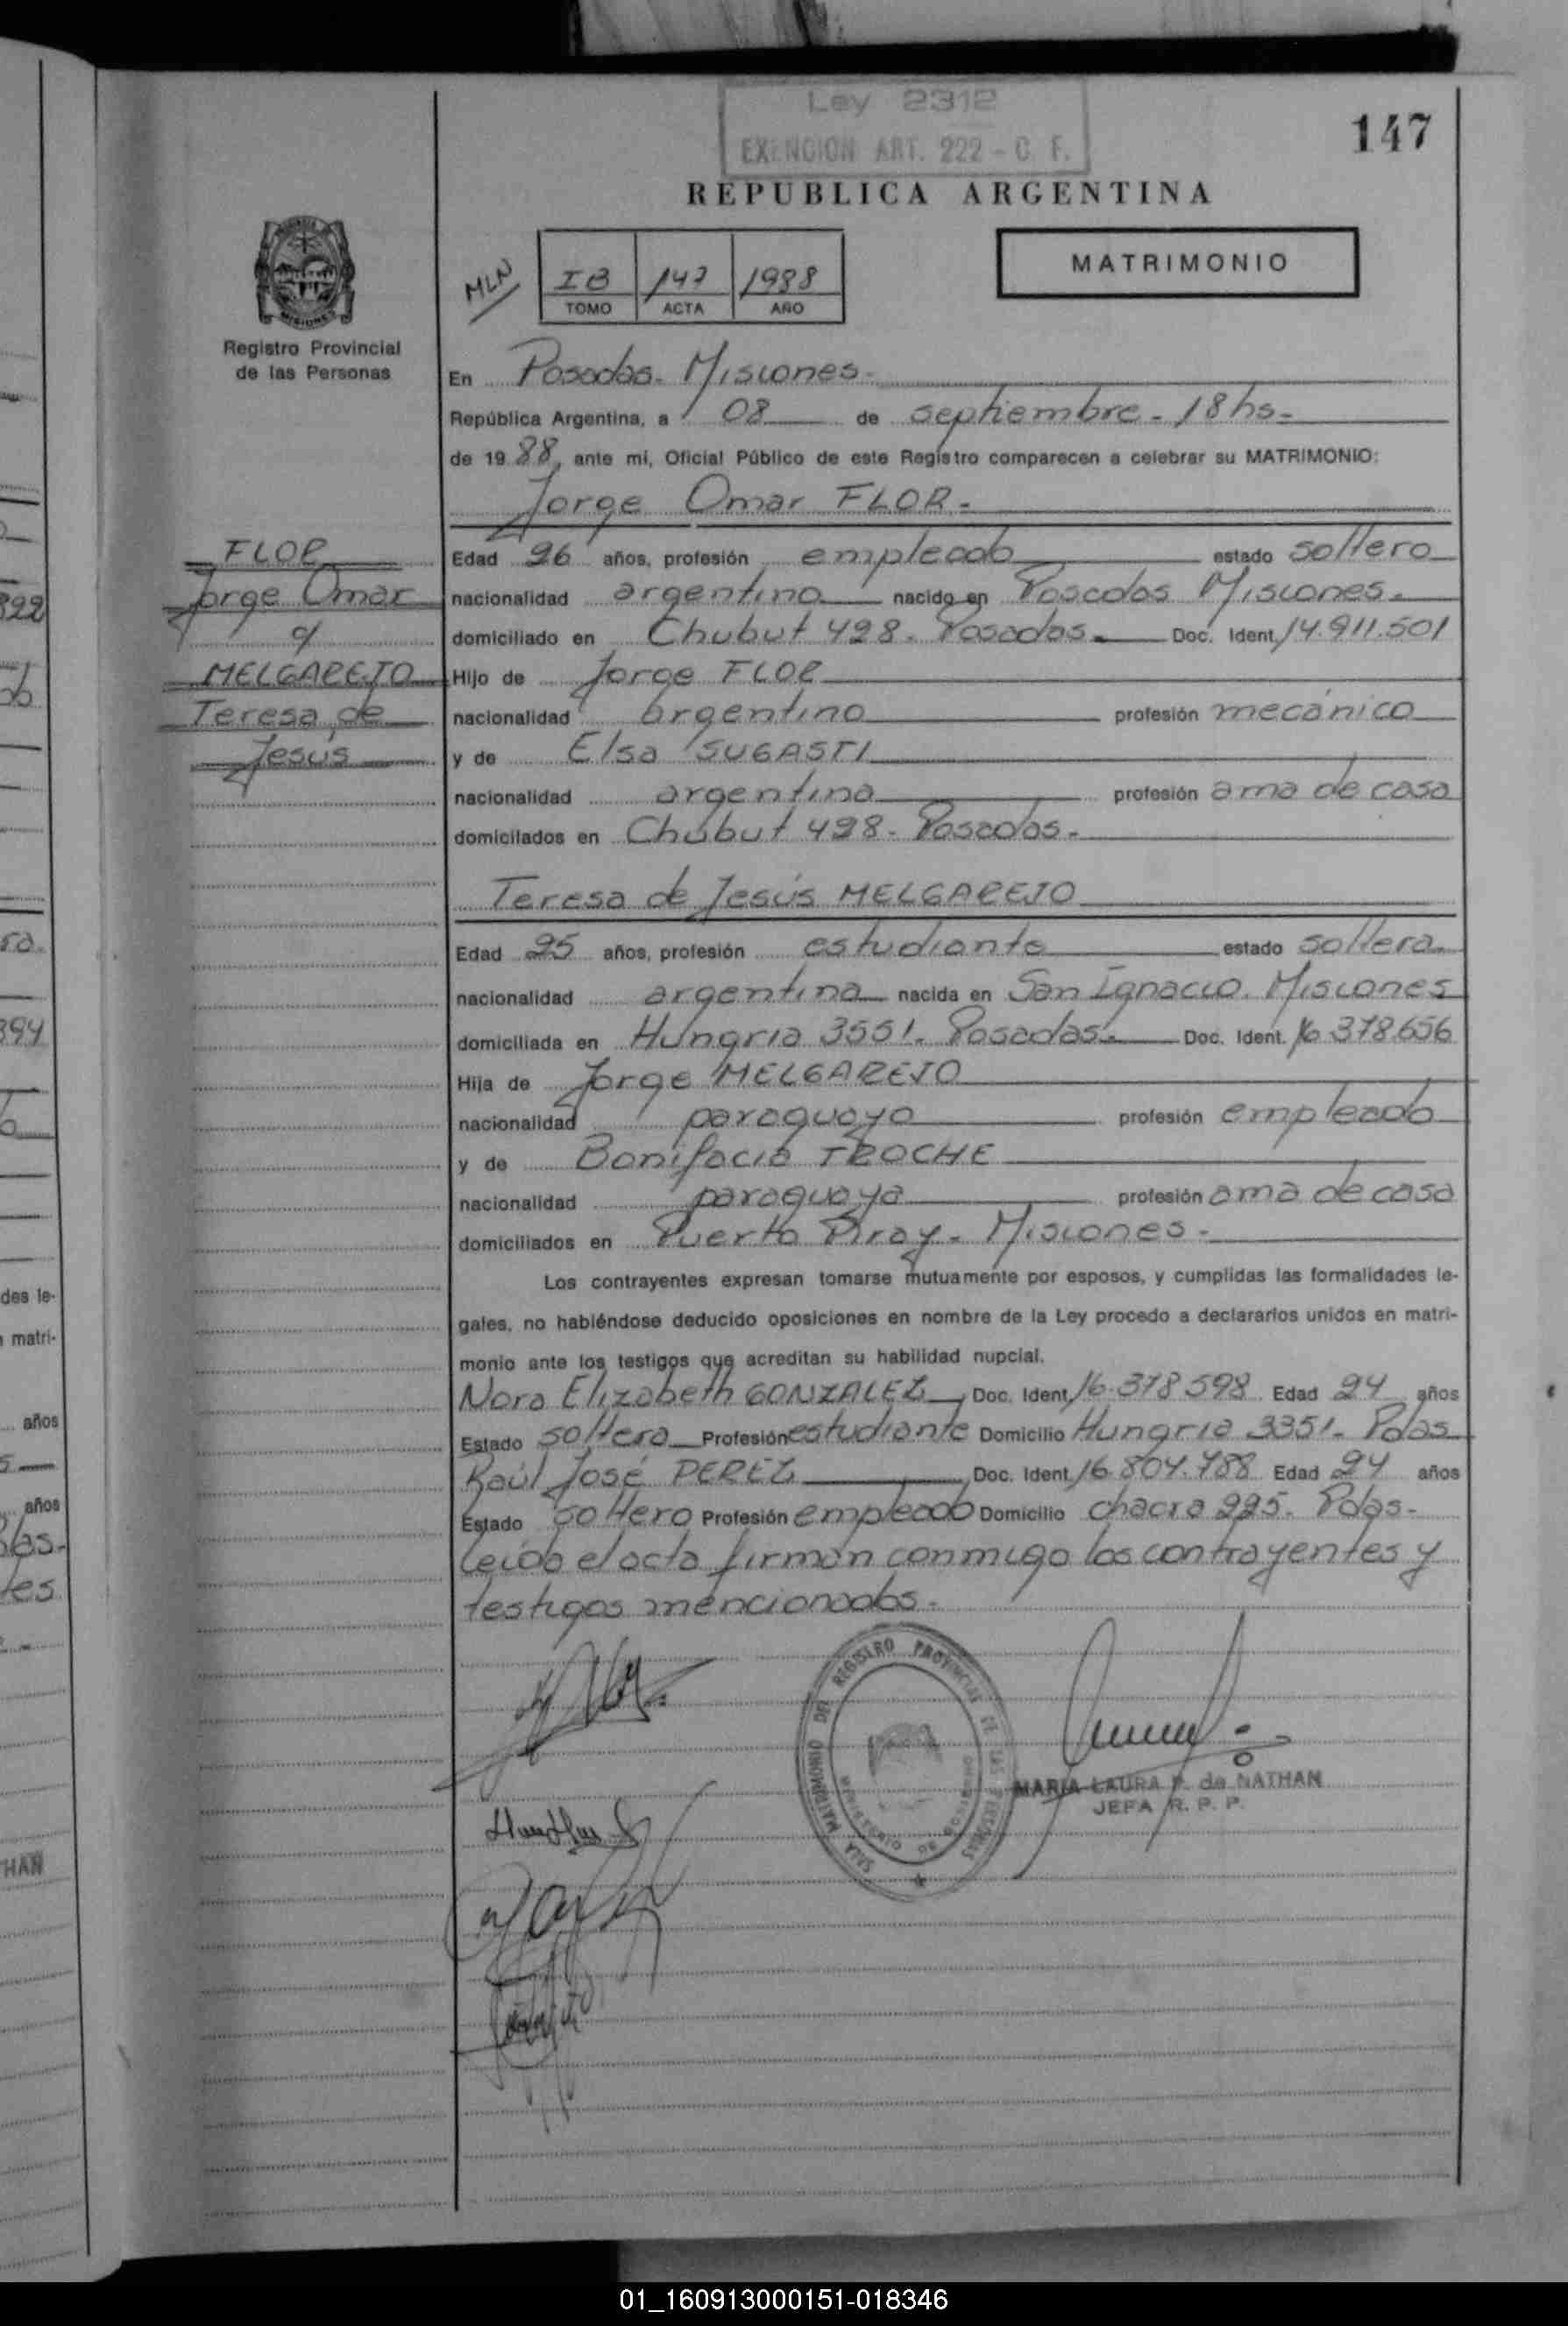 Ley 2312
EXENCION ART. 222 - C F.
147
REPUBLICA ARGENTINA
MISIONES
Registro Provincial
de las Personas
MLN
IB 147 1988
TOMO ACTA AÑO
MATRIMONIO
En Posadas - Misiones -
República Argentina, a 08 de septiembre - 18 hs -
de 1988, ante mi, Oficial Público de este Registro comparecen a celebrar su MATRIMONIO:
Jorge Omar FLOR -
FLOR
Jorge Omar
c/
MELGAREJO
Teresa de
Jesús
Edad 26 años, profesión empleado estado soltero
nacionalidad argentina nacido en Posadas Misiones -
domiciliado en Chubut 498 - Posadas - Doc. Ident. 14.911.501
Hijo de Jorge FLOR
nacionalidad argentino profesión mecánico
y de Elsa SUGASTI
nacionalidad argentina profesión ama de casa
domiciliados en Chubut 498 - Posadas -
Teresa de Jesús MELGAREJO
Edad 25 años, profesión estudiante estado soltera -
nacionalidad argentina nacida en San Ignacio. Misiones
domiciliada en Hungria 3551 - Posadas - Doc. Ident. 16 378.656
Hija de Jorge MELGAREJO
nacionalidad paraguayo profesión empleado
y de Bonifacia TROCHE
nacionalidad paraguaya profesión ama de casa
domiciliados en Puerto Piray - Misiones -
Los contrayentes expresan tomarse mutuamente por esposos, y cumplidas las formalidades le-
gales, no habiéndose deducido oposiciones en nombre de la Ley procedo a declararlos unidos en matri-
monio ante los testigos que acreditan su habilidad nupcial.
Nora Elizabeth GONZALEZ, Doc. Ident. 16.378 598 Edad 24 años
Estado soltera Profesión estudiante Domicilio Hungria 3351 - Pdas
Raúl José PEREZ, Doc. Ident. 16.804.788 Edad 24 años
Estado soltero Profesión empleado Domicilio chacra 225 - Pdas -
Leida el acta firman conmigo los contrayentes y
testigos mencionados -
SALA MATRIMONIO DEL REGISTRO PROVINCIAL DE LAS PERSONAS
MARIA LAURA P. de NATHAN
JEFA R. P. P.
822
394
des le-
matri-
años
años
HAN
01_160913000151-018346